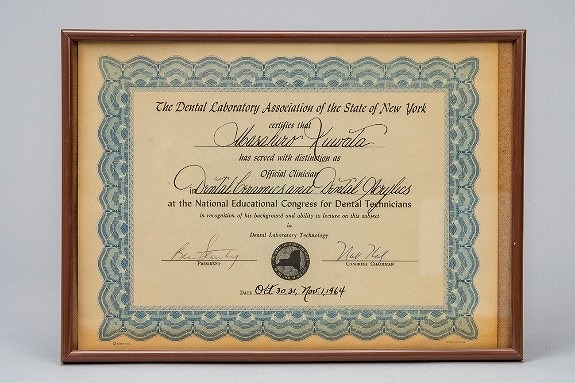 The Dental Laboratory Association of the State of New York
certifies that
Masahiro Kuwata
has served with distinction as
Official Clinician
in Dental Ceramics and Dental Acrylics
at the National Educational Congress for Dental Technicians
in recognition of his background and ability to lecture on this subject
in
Dental Laboratory Technology
PRESIDENT
CONGRESS CHAIRMAN
DATE Oct 30, 31, Nov. 1, 1964